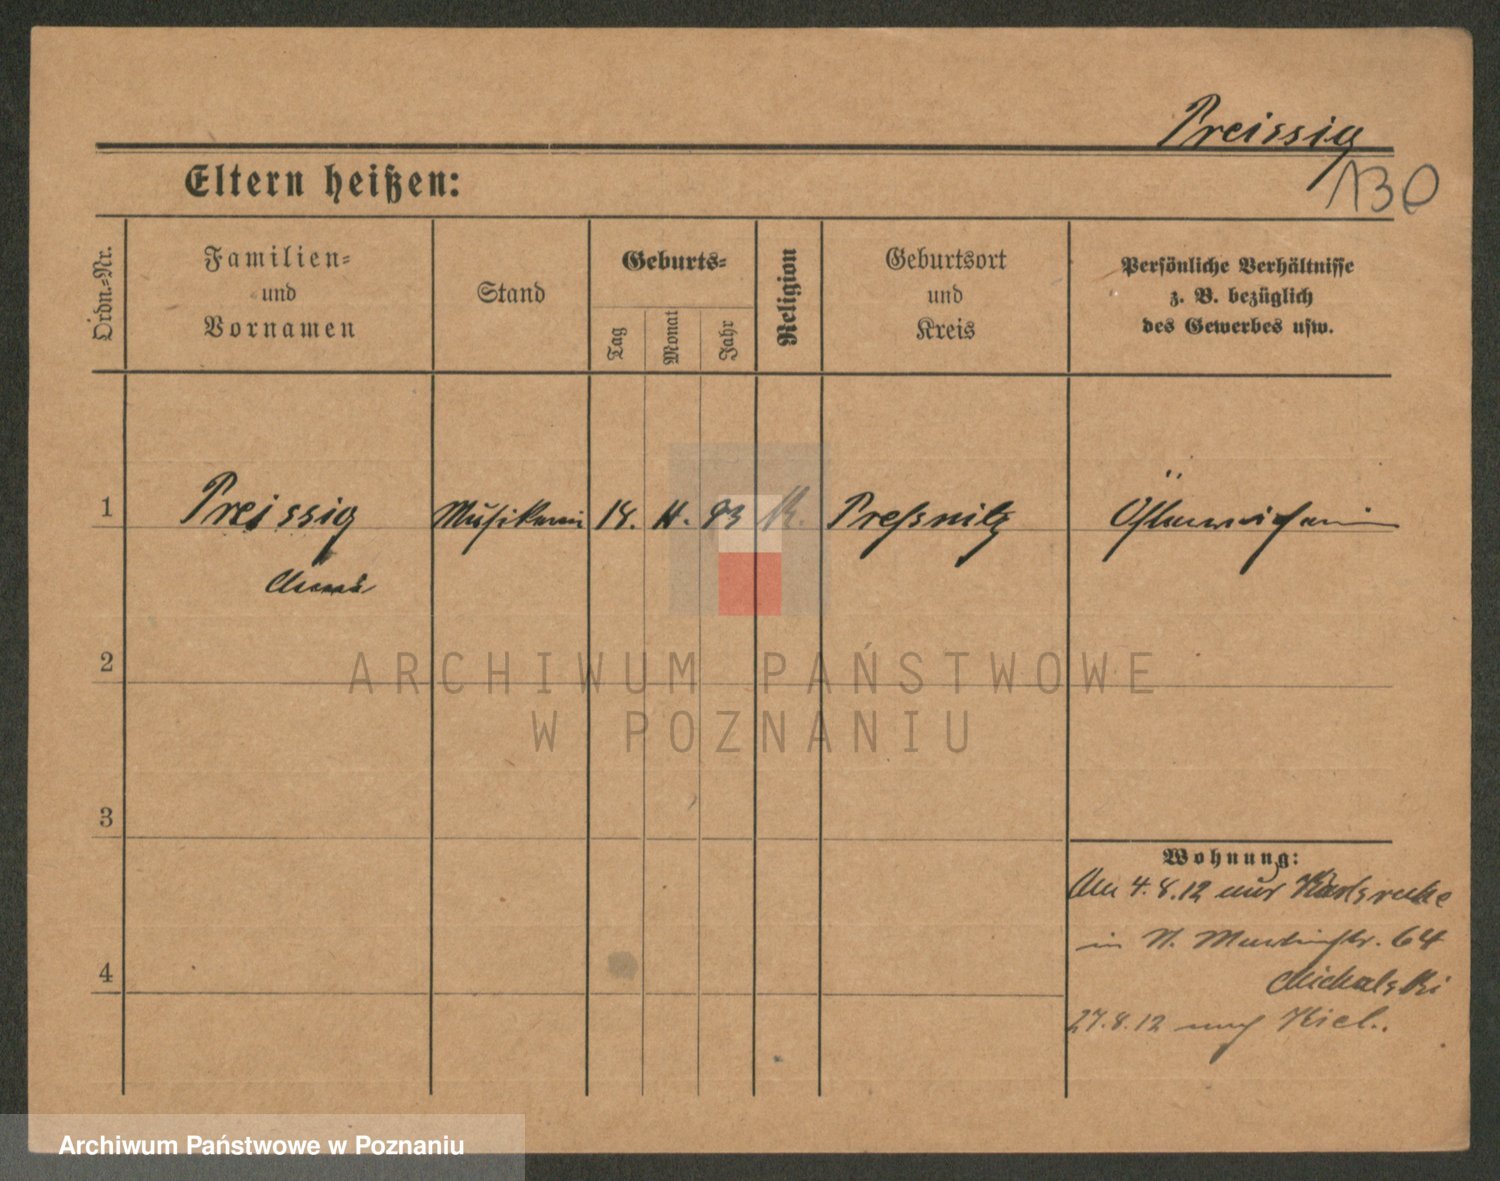 Preissig
130
Eltern heißen:
Ordn.-Nr.
Familien-
und
Vornamen
Stand
Geburts-
Tag
Monat
Jahr
Religion
Geburtsort
und
Kreis
Persönliche Verhältnisse
z. B. bezüglich
des Gewerbes usw.
1 Preissig Musikerin 18. 4. 93 K. Preßnitz Österreicherin
Anna
2
ARCHIWUM PAŃSTWOWE
W POZNANIU
3
Wohnung:
Am 4.8.12 aus Karlsruhe
in St. Martinstr. 64
4
Michalski
27.8.12 nach Kiel.
Archiwum Państwowe w Poznaniu